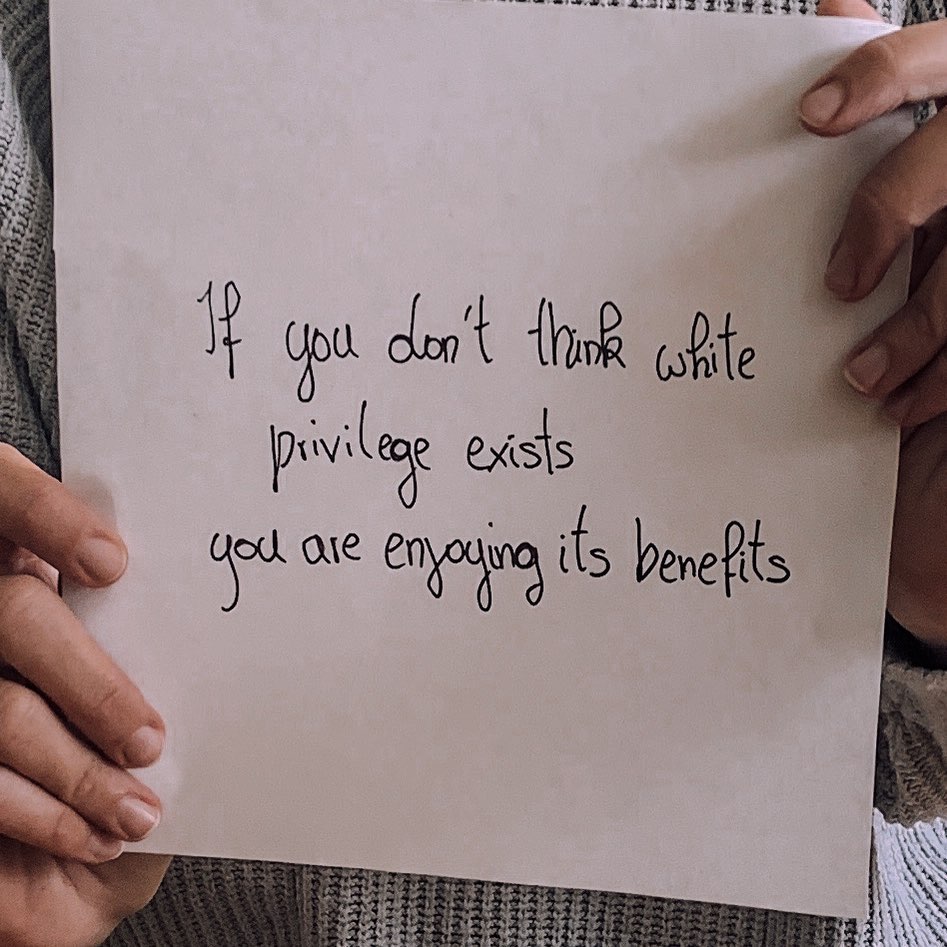 If you don't think white
privilege exists
you are enjoying its benefits